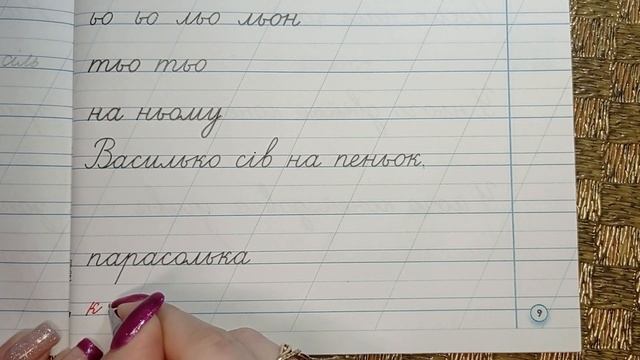 ьо ьо льо льон
тьо тьо
на ньому
Василько сів на пеньок.
парасолька
к
9